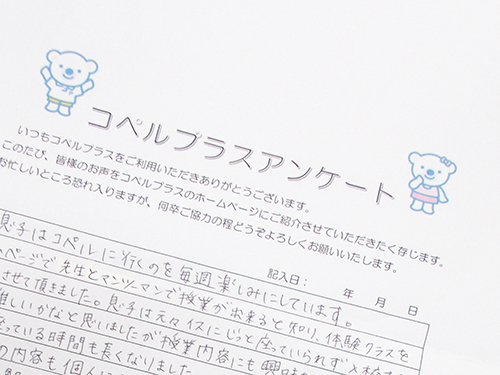 コペルプラスアンケート
いつもコペルプラスをご利用いただきありがとうございます。
このたび、皆様のお声をコペルプラスのホームページにご紹介させていただきたく存じます。
お忙しいところ恐れ入りますが、何卒ご協力の程どうぞよろしくお願いいたします。
記入日： 年 月 日
息子はコペルに行くのを毎週楽しみにしています。
ページで先生とマンツーマンで授業が出来ると知り、体験クラスを
させて頂きました。息子は元々イスにじっと座っていられず
難しいかなと思いましたが授業内容にも興味
っている時間も長くなりました。
の内容も個人に